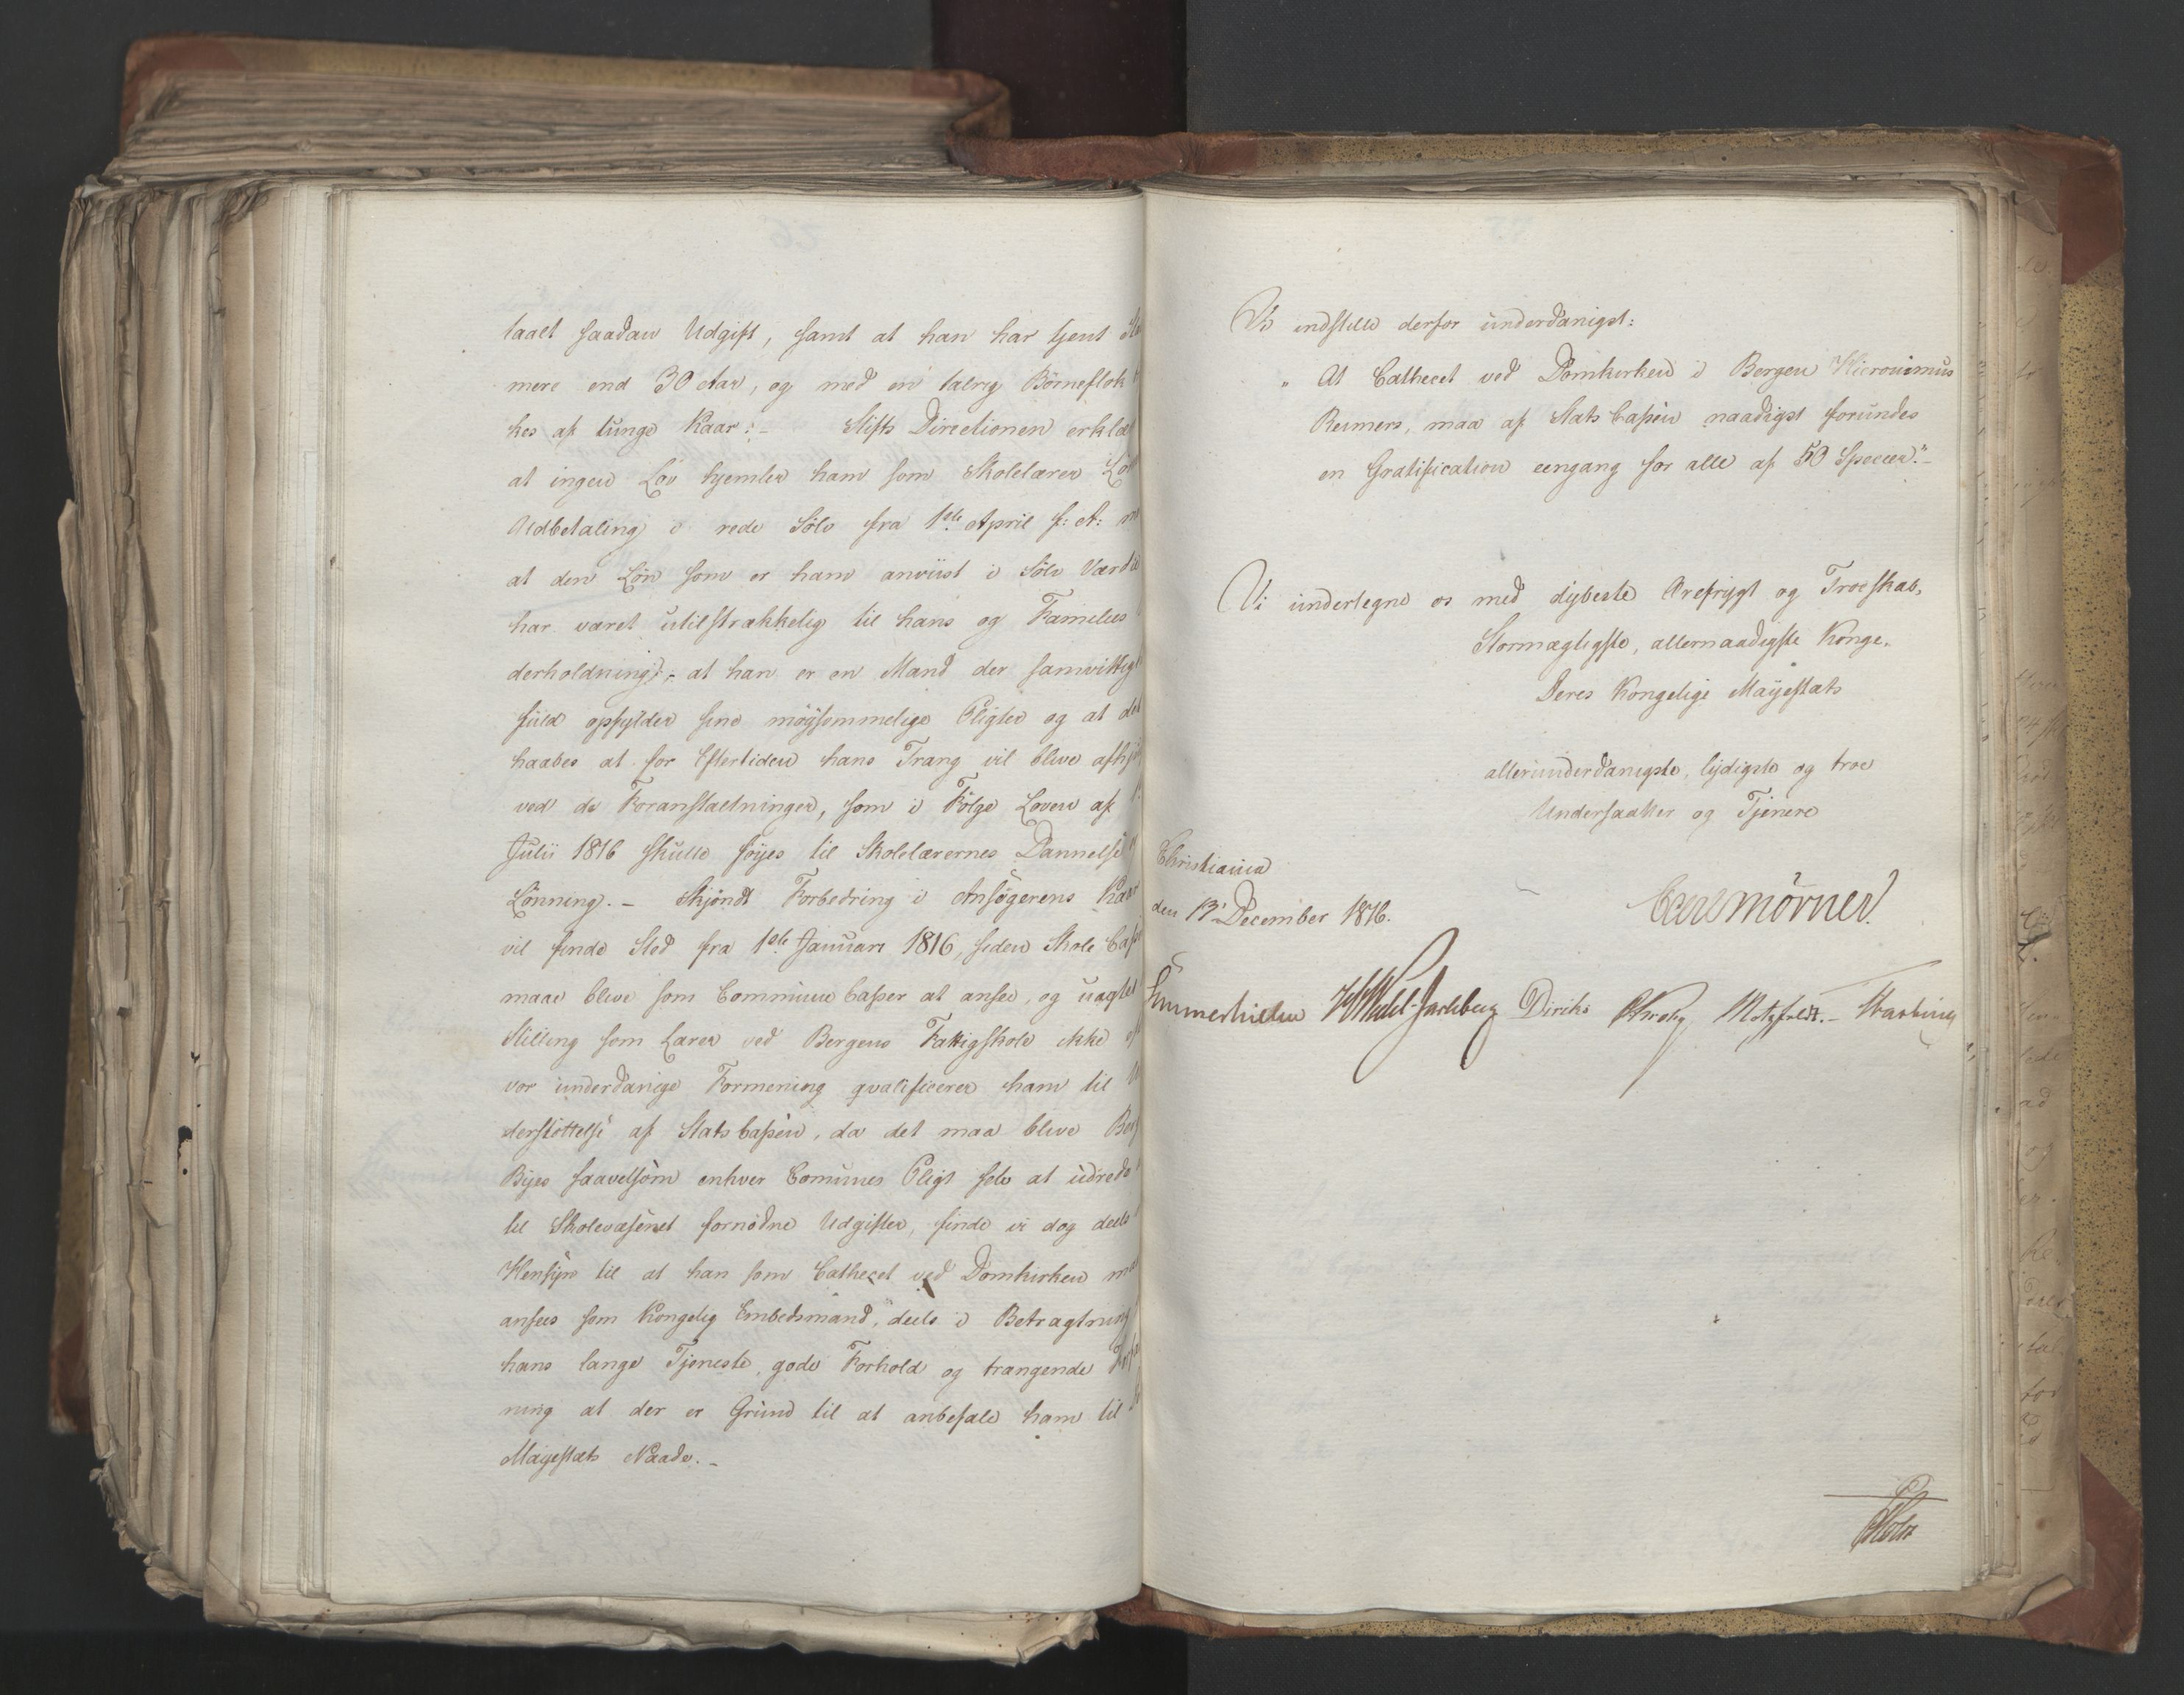 taalt saadan Udgift, samt at han har tjent
mere end 30 Aar, og med en talrig Børneflok
kes af tunge Kaar: - Stifts Directionen erklæ
at ingen Lov hjemler ham som Skolelærer Lø
Udbetaling i rede Sølv fra 1ste April f: A:
at den Løn som er ham anviist i Sølv Værdie
har været utilstrækkelig til hans og Families
derholdning; - at han er en Mand der samvittig
fuld opfylder sine møysommelige Pligter og at det
haabes at for Eftertiden hans Trang vil blive afhjæ
ved de Foranstaltninger, som i Følge Loven af
Julii 1816 skulle føyes til Skolelærernes Dannelse
Lønning. - Skjøndt Forbedring i Ansøgerens Kaar
vil finde Sted fra 1ste Januari 1816, siden Skole Cass
maae blive som Commune Casser at ansee, og uagtet
Stilling som Lærer ved Bergens Fattigskole ikke
vor underdanige Formening qvalificerer ham til
derstøttelse af Stats Cassen, da det maa blive Berg
Byes saavelsom enhver Comunes Pligt selv at udrede
til Skolevæsenet fornødne Udgifter, finde vi dog deels
Hensyn til at han som Cathecet ved Domkirken
ansees som Kongelig Embedsmand, deels i Betragtning
hans lange Tjeneste, gode Forhold og trængende
ning at der er Grund til at anbefale ham til
Mayestæts Naade. -
Vi indstille derfor underdanigst:
" At Cathecet ved Domkirken i Bergen Hieronimus
Reimers, maa af Stats Cassen naadigst forundes
en Gratification eengang for alle af 50 Specier." -
Vi undertegne os med dybeste Ærefrygt og Troeskab,
Stormægtigste, allernaadigste Konge,
Deres Kongelige Mayestæts
allerunderdanigste, lydigste og troe
Undersaatter og Tjenere
Christiania
den 13 December 1816.
Carl Mörner.
Sommerhielm HWedel-Jarlsberg Diriks Krohg Motzfeldt. -
Holst